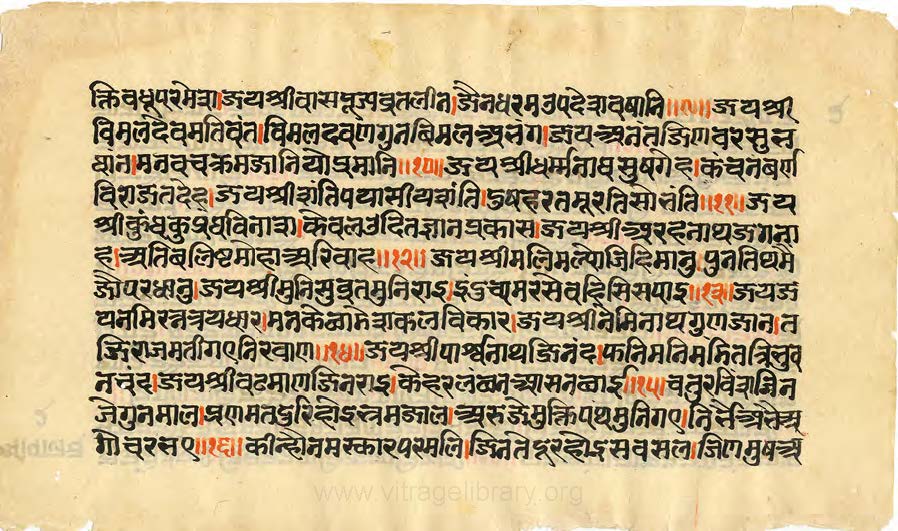 क्तिवधूपरमेश।जयश्रीवासपूज्यव्रतलीन।जैनधरमउपदेशवषानि॥९॥जयश्री
विमलदेवमतिवंत।विमलदर्वणगुनविमलअनंग।जयअनतजिणवरसुन
धान।मनवचक्रमजानियोप्रमानि॥१०॥जयश्रीधर्म्मनाथसुषगेह।कंचनवर्ण
विराजतदेह।जयश्रीशांतिपयासीयशांति।दुषहरतमूरतिसोलंति॥११॥जय
श्रीकुंथुकुप्रथविनाश।केवलउदितज्ञानप्रकास।जयश्रीअरहनाथजगना
ह।अतिबलिष्टमोहाअरिवाह॥१२॥जयश्रीमलिमल्योजिहिमानु।पुनतिथमे
जोपरधानु।जयश्रीमुनिसुव्रतमुनिराइ।इंद्रचमरसेवहिसिसपाइ॥१३॥जयज
यनमिरत्नत्रयधार।मनकेनाममाकलविकार।जयश्रीनेमिनाथगुणजान।त
जिराजमतीगएनिरवाण॥१४॥जयश्रीपार्श्वनाथजिनंद।फनिमनिमंडितत्रिभुव
नचंद।जयश्रीवढमाणजिनराइ।केहरलंछनआसनछाइ॥१५॥चतुरविशजिन
जैगुनमाल।प्रणमतदुरिहोइत्रमजाल।अरुजेमुक्तिपथमुनिगए।ति
गोचरसए॥१६॥कीन्होनमस्कारपरमलि।जिनतेदूरहोइसवसल।जिणमुषअ
www.vitragelibrary.org